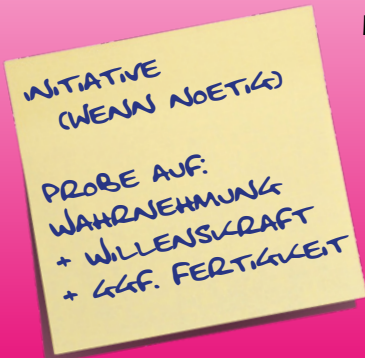 INITIATIVE
(WENN NOETIG)
PROBE AUF:
WAHRNEHMUNG
+ WILLENSKRAFT
+ GGF. FERTIGKEIT